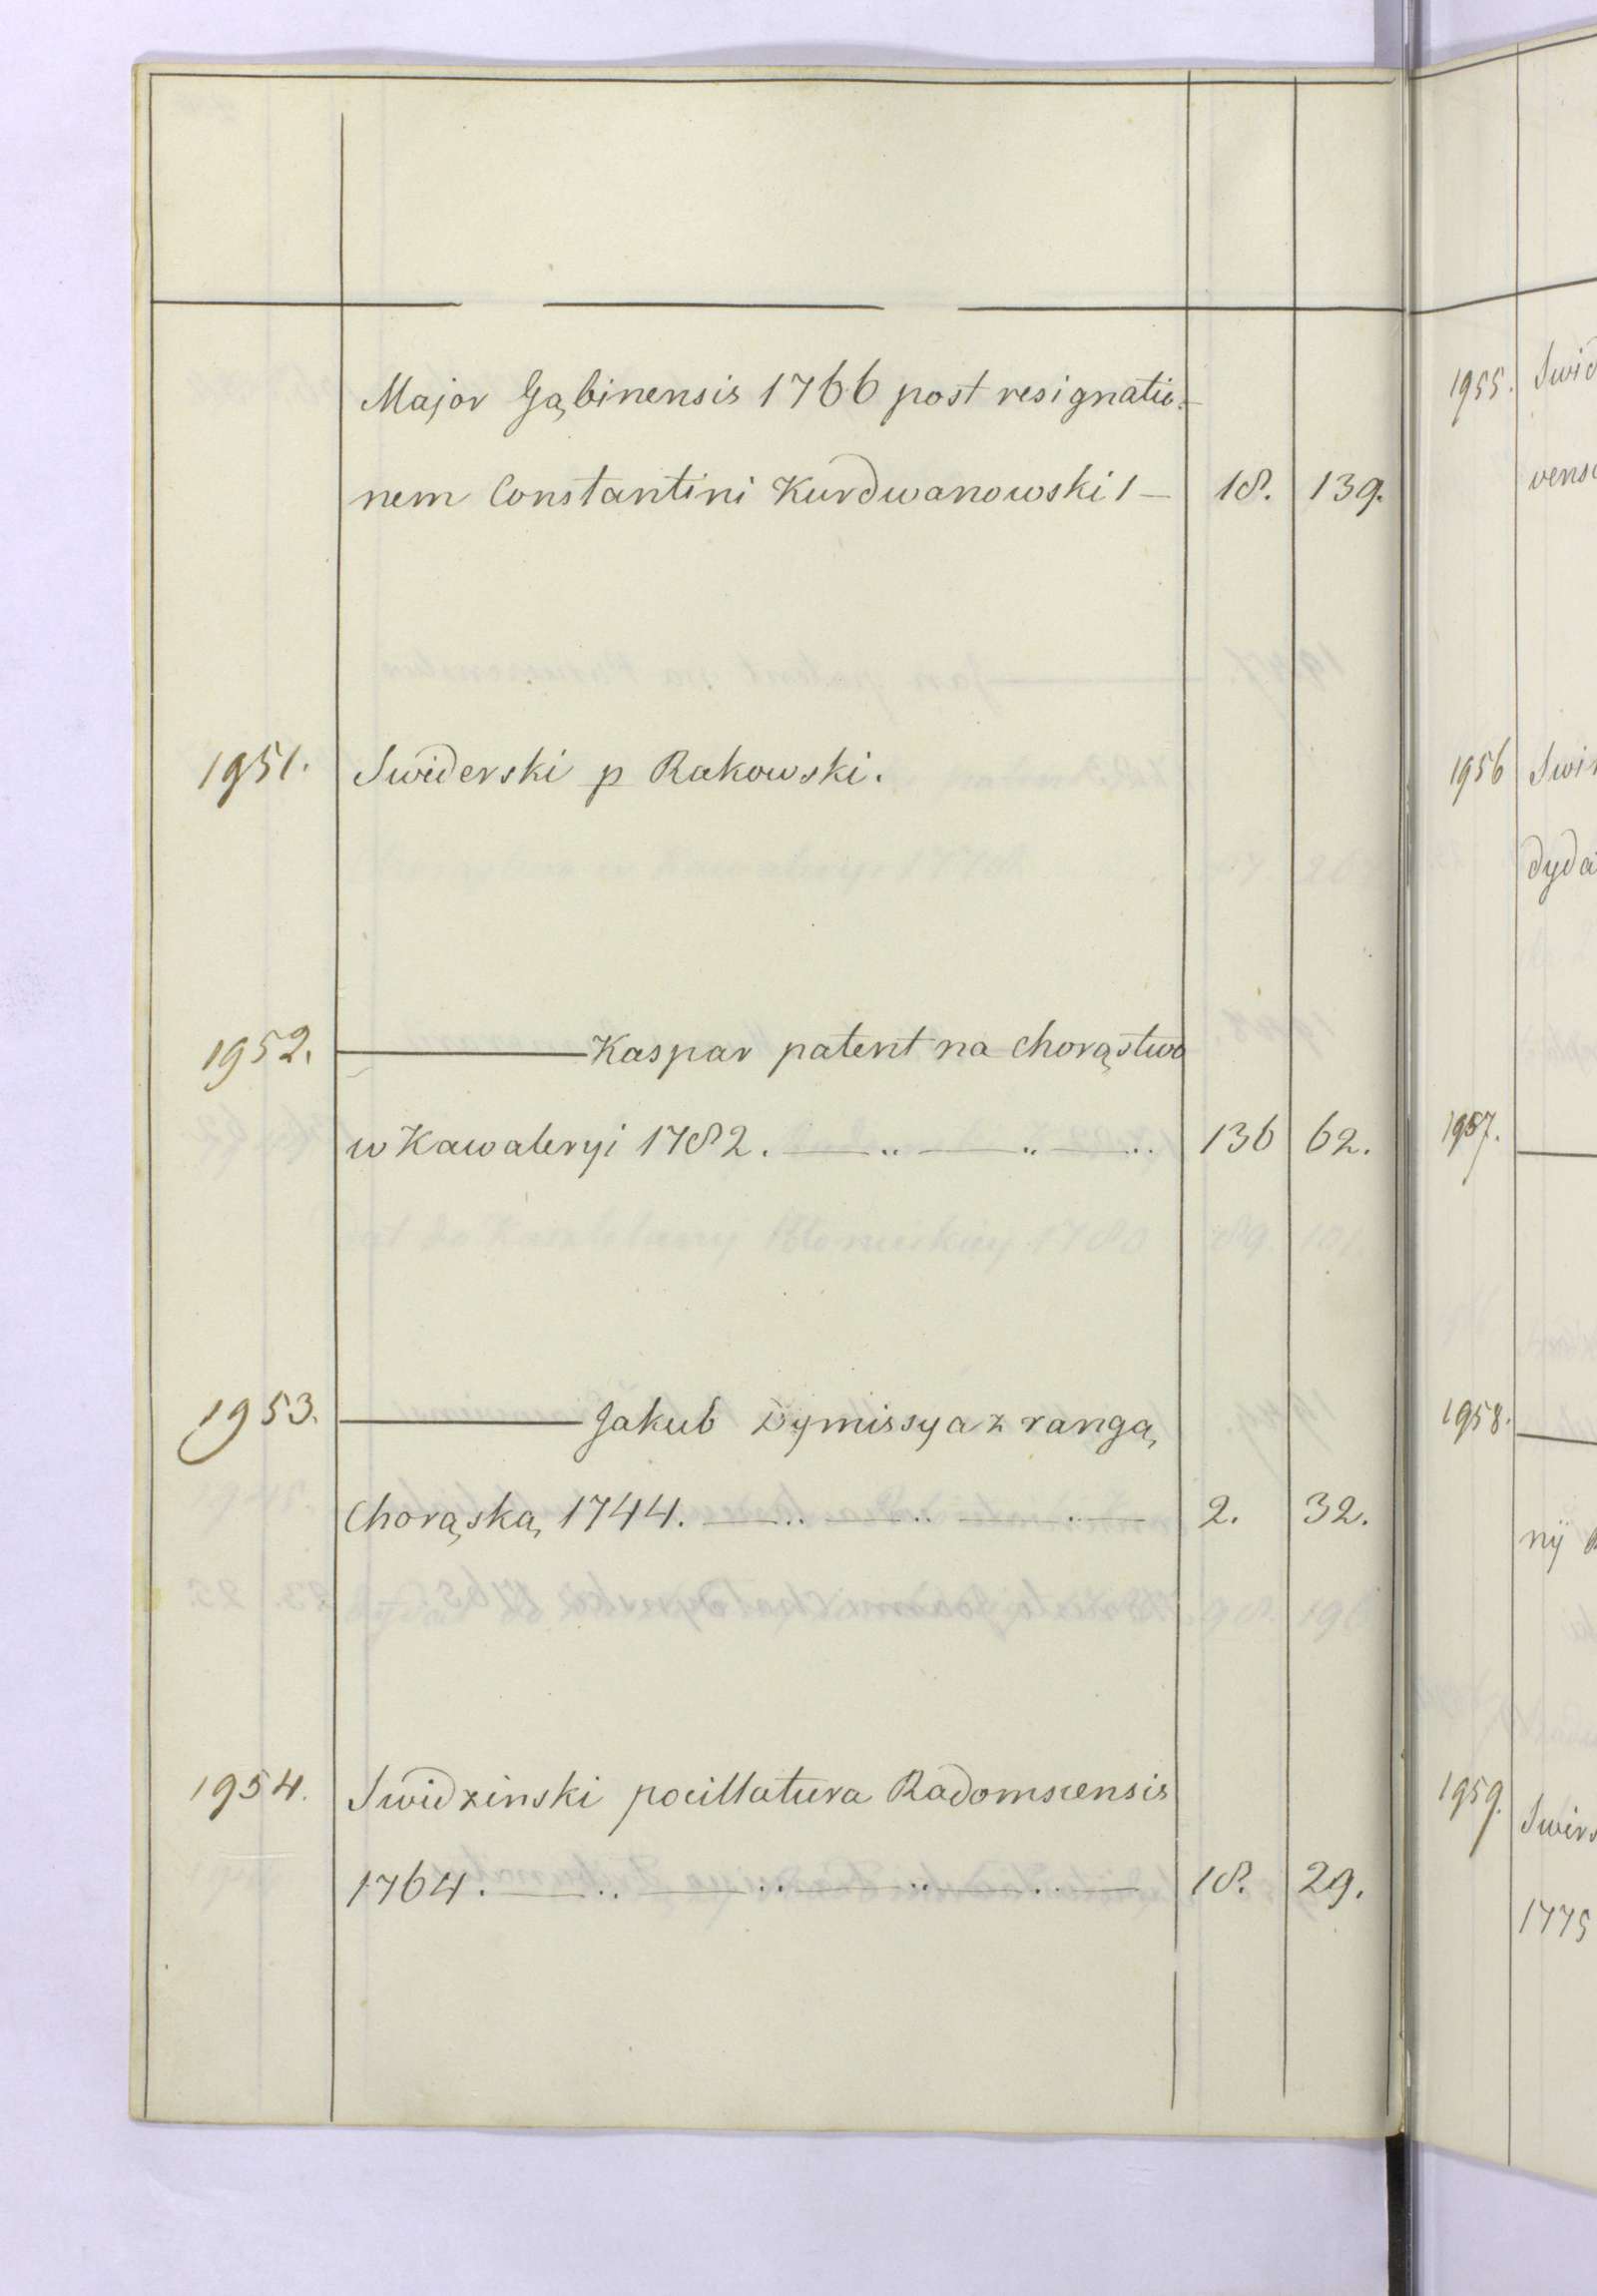 Major Gąbinensis 1766 post resignatio-
nem Constantini Kurdwanowski 1 — 18. 139.
1951. Swiderski p Rakowski.
1952. ——— Kaspar patent na chorąstwo
w Kawaleryi 1782. 136 62.
1953. ——— Jakub Dymissya z rangą
Chorąską 1744. 2. 32.
1954. Swidzinski pocillatura Radomscensis
1764. 18. 29.
1955.
1956
1957.
1958.
1959.
1775